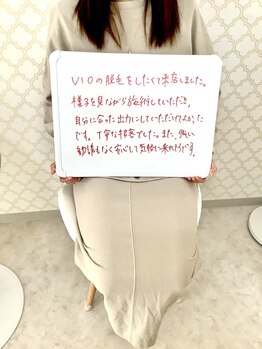 VIOの脱毛をしたくて来店しました。
様子を見ながら施術していただき、
自分に合った出力にしていただけてよかった
です。丁寧な接客でした。また、強い
勧誘もなく安心して気軽に来れそうです。